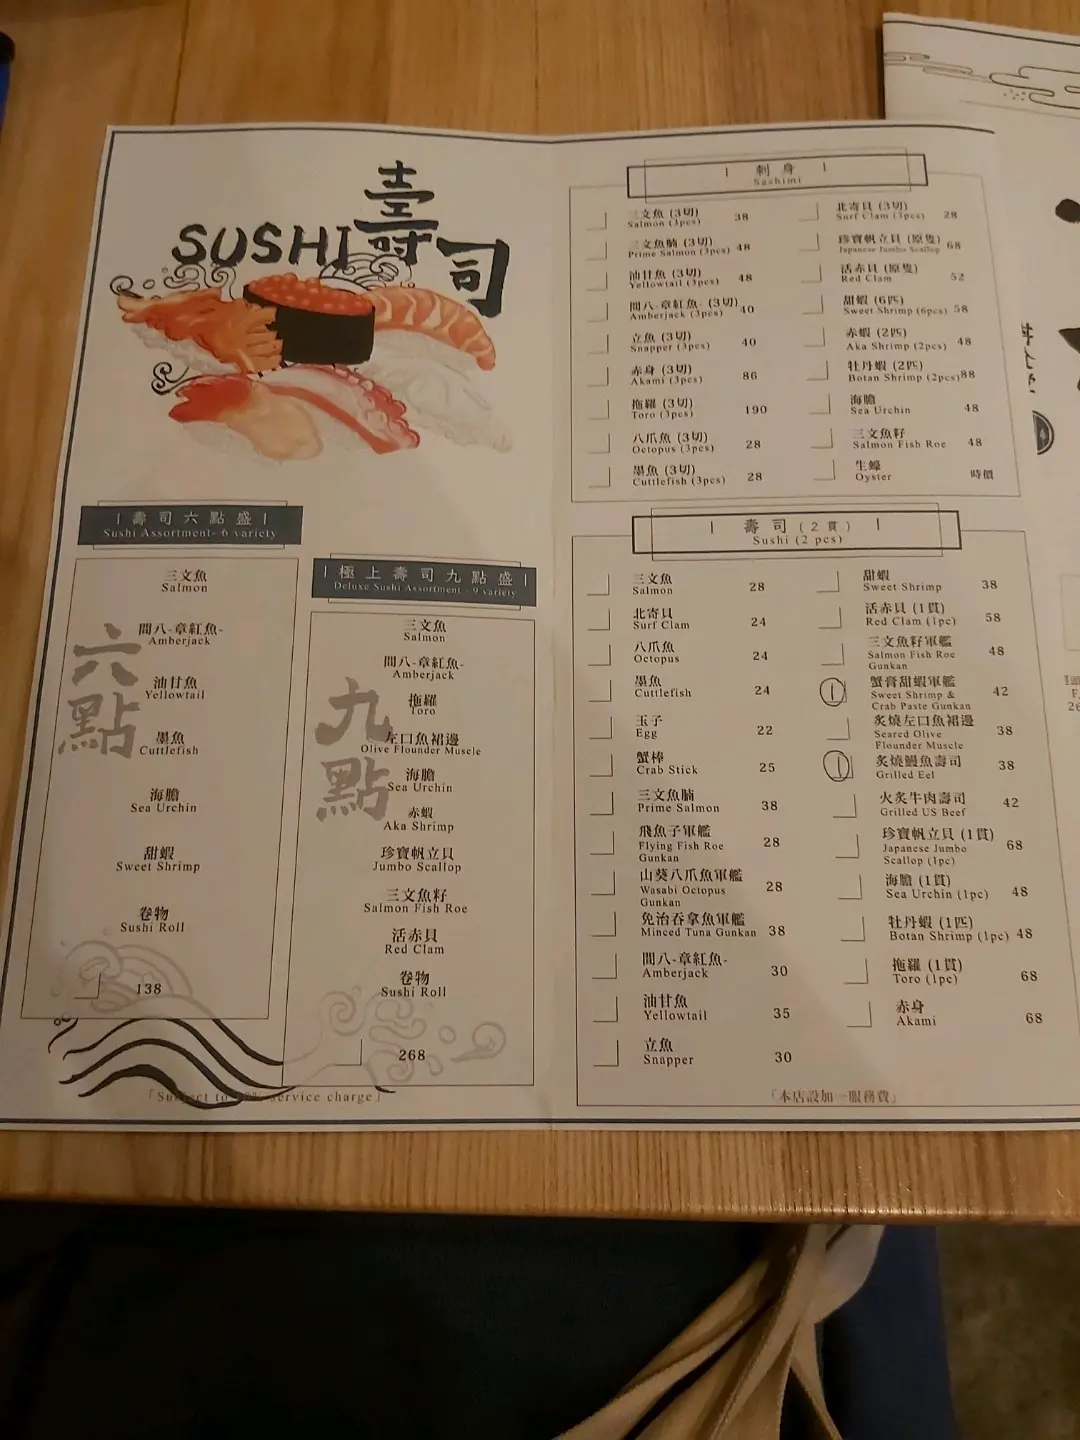 SUSHI 壽司
壽司六點盛
Sushi Assortment- 6 variety
六點
三文魚
Salmon
間八-章紅魚-
Amberjack
油甘魚
Yellowtail
墨魚
Cuttlefish
海膽
Sea Urchin
甜蝦
Sweet Shrimp
卷物
Sushi Roll
138
極上壽司九點盛
Deluxe Sushi Assortment - 9 variety
九點
三文魚
Salmon
間八-章紅魚-
Amberjack
拖羅
Toro
左口魚裙邊
Olive Flounder Muscle
海膽
Sea Urchin
赤蝦
Aka Shrimp
珍寶帆立貝
Jumbo Scallop
三文魚籽
Salmon Fish Roe
活赤貝
Red Clam
卷物
Sushi Roll
268
「Subject to 10% service charge」
刺身
Sashimi
三文魚 (3切)
Salmon (3pcs) 38
三文魚腩 (3切)
Prime Salmon (3pcs) 48
油甘魚 (3切)
Yellowtail (3pcs) 48
間八-章紅魚- (3切)
Amberjack (3pcs) 40
立魚 (3切)
Snapper (3pcs) 40
赤身 (3切)
Akami (3pcs) 86
拖羅 (3切)
Toro (3pcs) 190
八爪魚 (3切)
Octopus (3pcs) 28
墨魚 (3切)
Cuttlefish (3pcs) 28
北寄貝 (3切)
Surf Clam (3pcs) 28
珍寶帆立貝 (原隻)
Japanese Jumbo Scallop 68
活赤貝 (原隻)
Red Clam 52
甜蝦 (6匹)
Sweet Shrimp (6pcs) 58
赤蝦 (2匹)
Aka Shrimp (2pcs) 48
牡丹蝦 (2匹)
Botan Shrimp (2pcs) 88
海膽
Sea Urchin 48
三文魚籽
Salmon Fish Roe 48
生蠔
Oyster 時價
壽司 (2貫)
Sushi (2 pcs)
三文魚
Salmon 28
北寄貝
Surf Clam 24
八爪魚
Octopus 24
墨魚
Cuttlefish 24
玉子
Egg 22
蟹棒
Crab Stick 25
三文魚腩
Prime Salmon 38
飛魚子軍艦
Flying Fish Roe 28
Gunkan
山葵八爪魚軍艦
Wasabi Octopus 28
Gunkan
免治吞拿魚軍艦
Minced Tuna Gunkan 38
間八-章紅魚-
Amberjack 30
油甘魚
Yellowtail 35
立魚
Snapper 30
甜蝦
Sweet Shrimp 38
活赤貝 (1貫)
Red Clam (1pc) 58
三文魚籽軍艦
Salmon Fish Roe 48
Gunkan
蟹膏甜蝦軍艦
Sweet Shrimp & 42
Crab Paste Gunkan
炙燒左口魚裙邊
Seared Olive 38
Flounder Muscle
炙燒鰻魚壽司
Grilled Eel 38
火炙牛肉壽司
Grilled US Beef 42
珍寶帆立貝 (1貫)
Japanese Jumbo 68
Scallop (1pc)
海膽 (1貫)
Sea Urchin (1pc) 48
牡丹蝦 (1匹)
Botan Shrimp (1pc) 48
拖羅 (1貫)
Toro (1pc) 68
赤身
Akami 68
「本店設加一服務費」